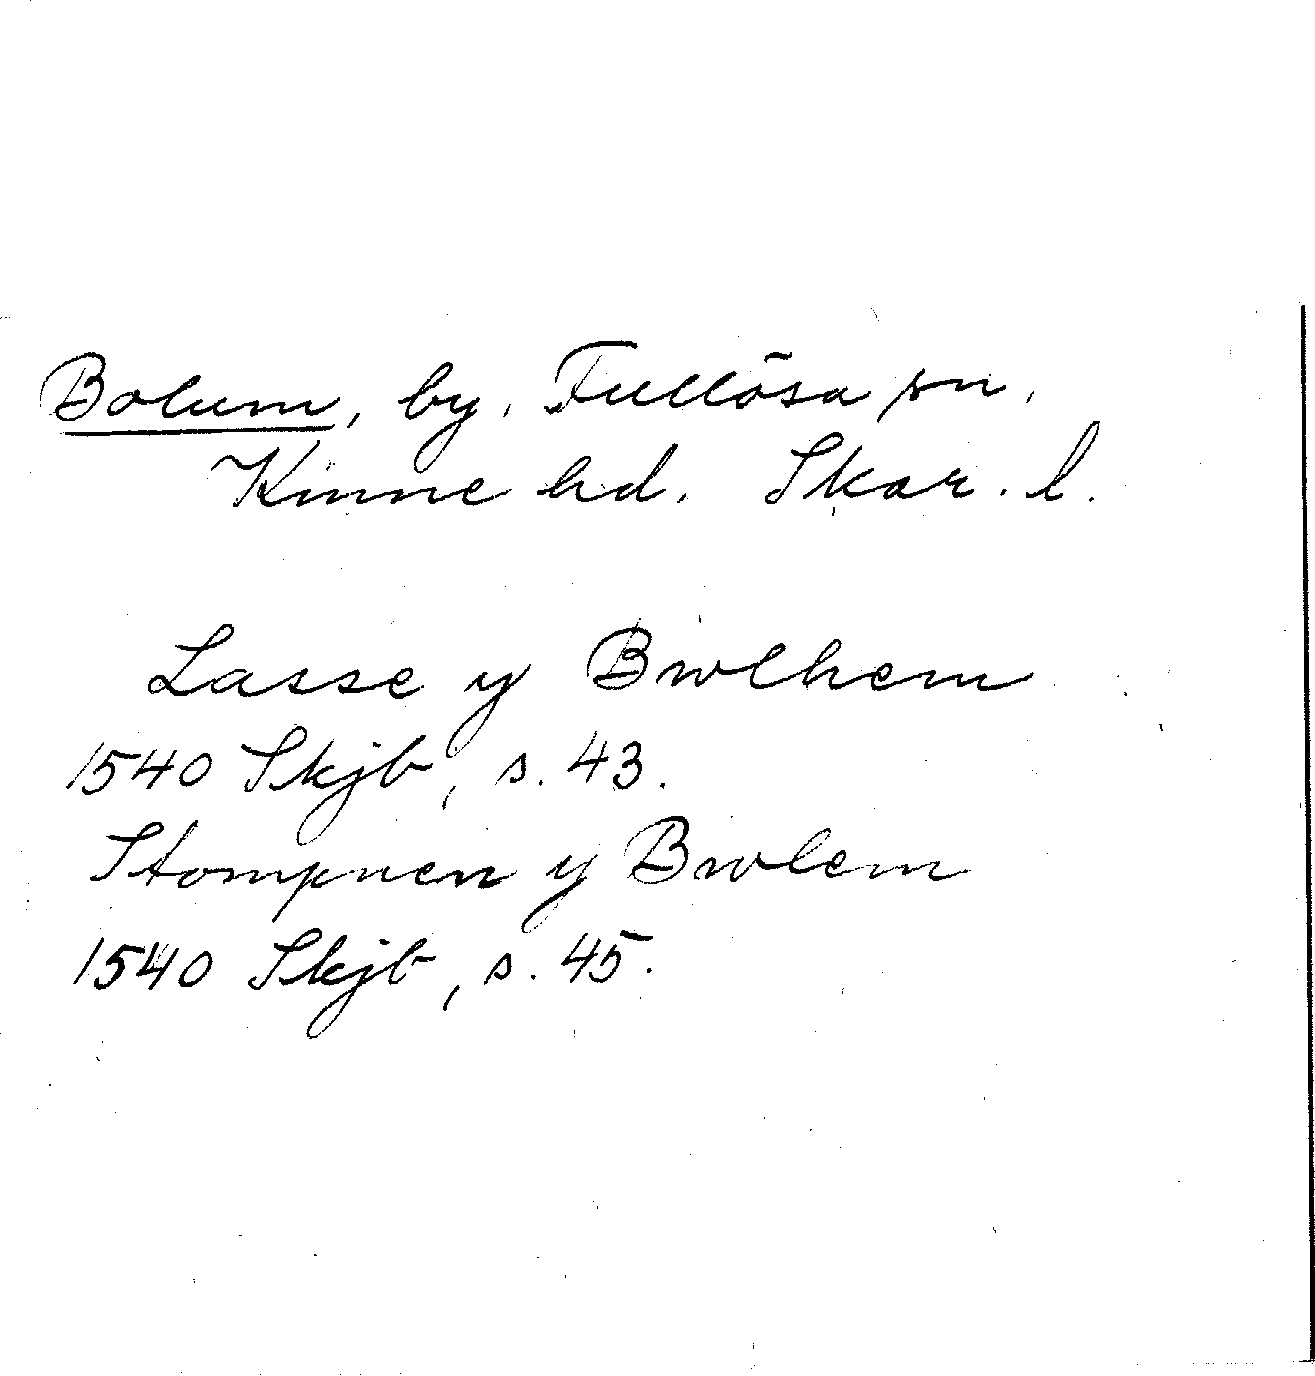 Bolum, by, Fullösa sn,
Kinne hd. Skar. l.
Lasse y Bwlhem
1540 Skjb, s. 43.
Stompnen y Bwlem
1540 Skjb, s. 45.